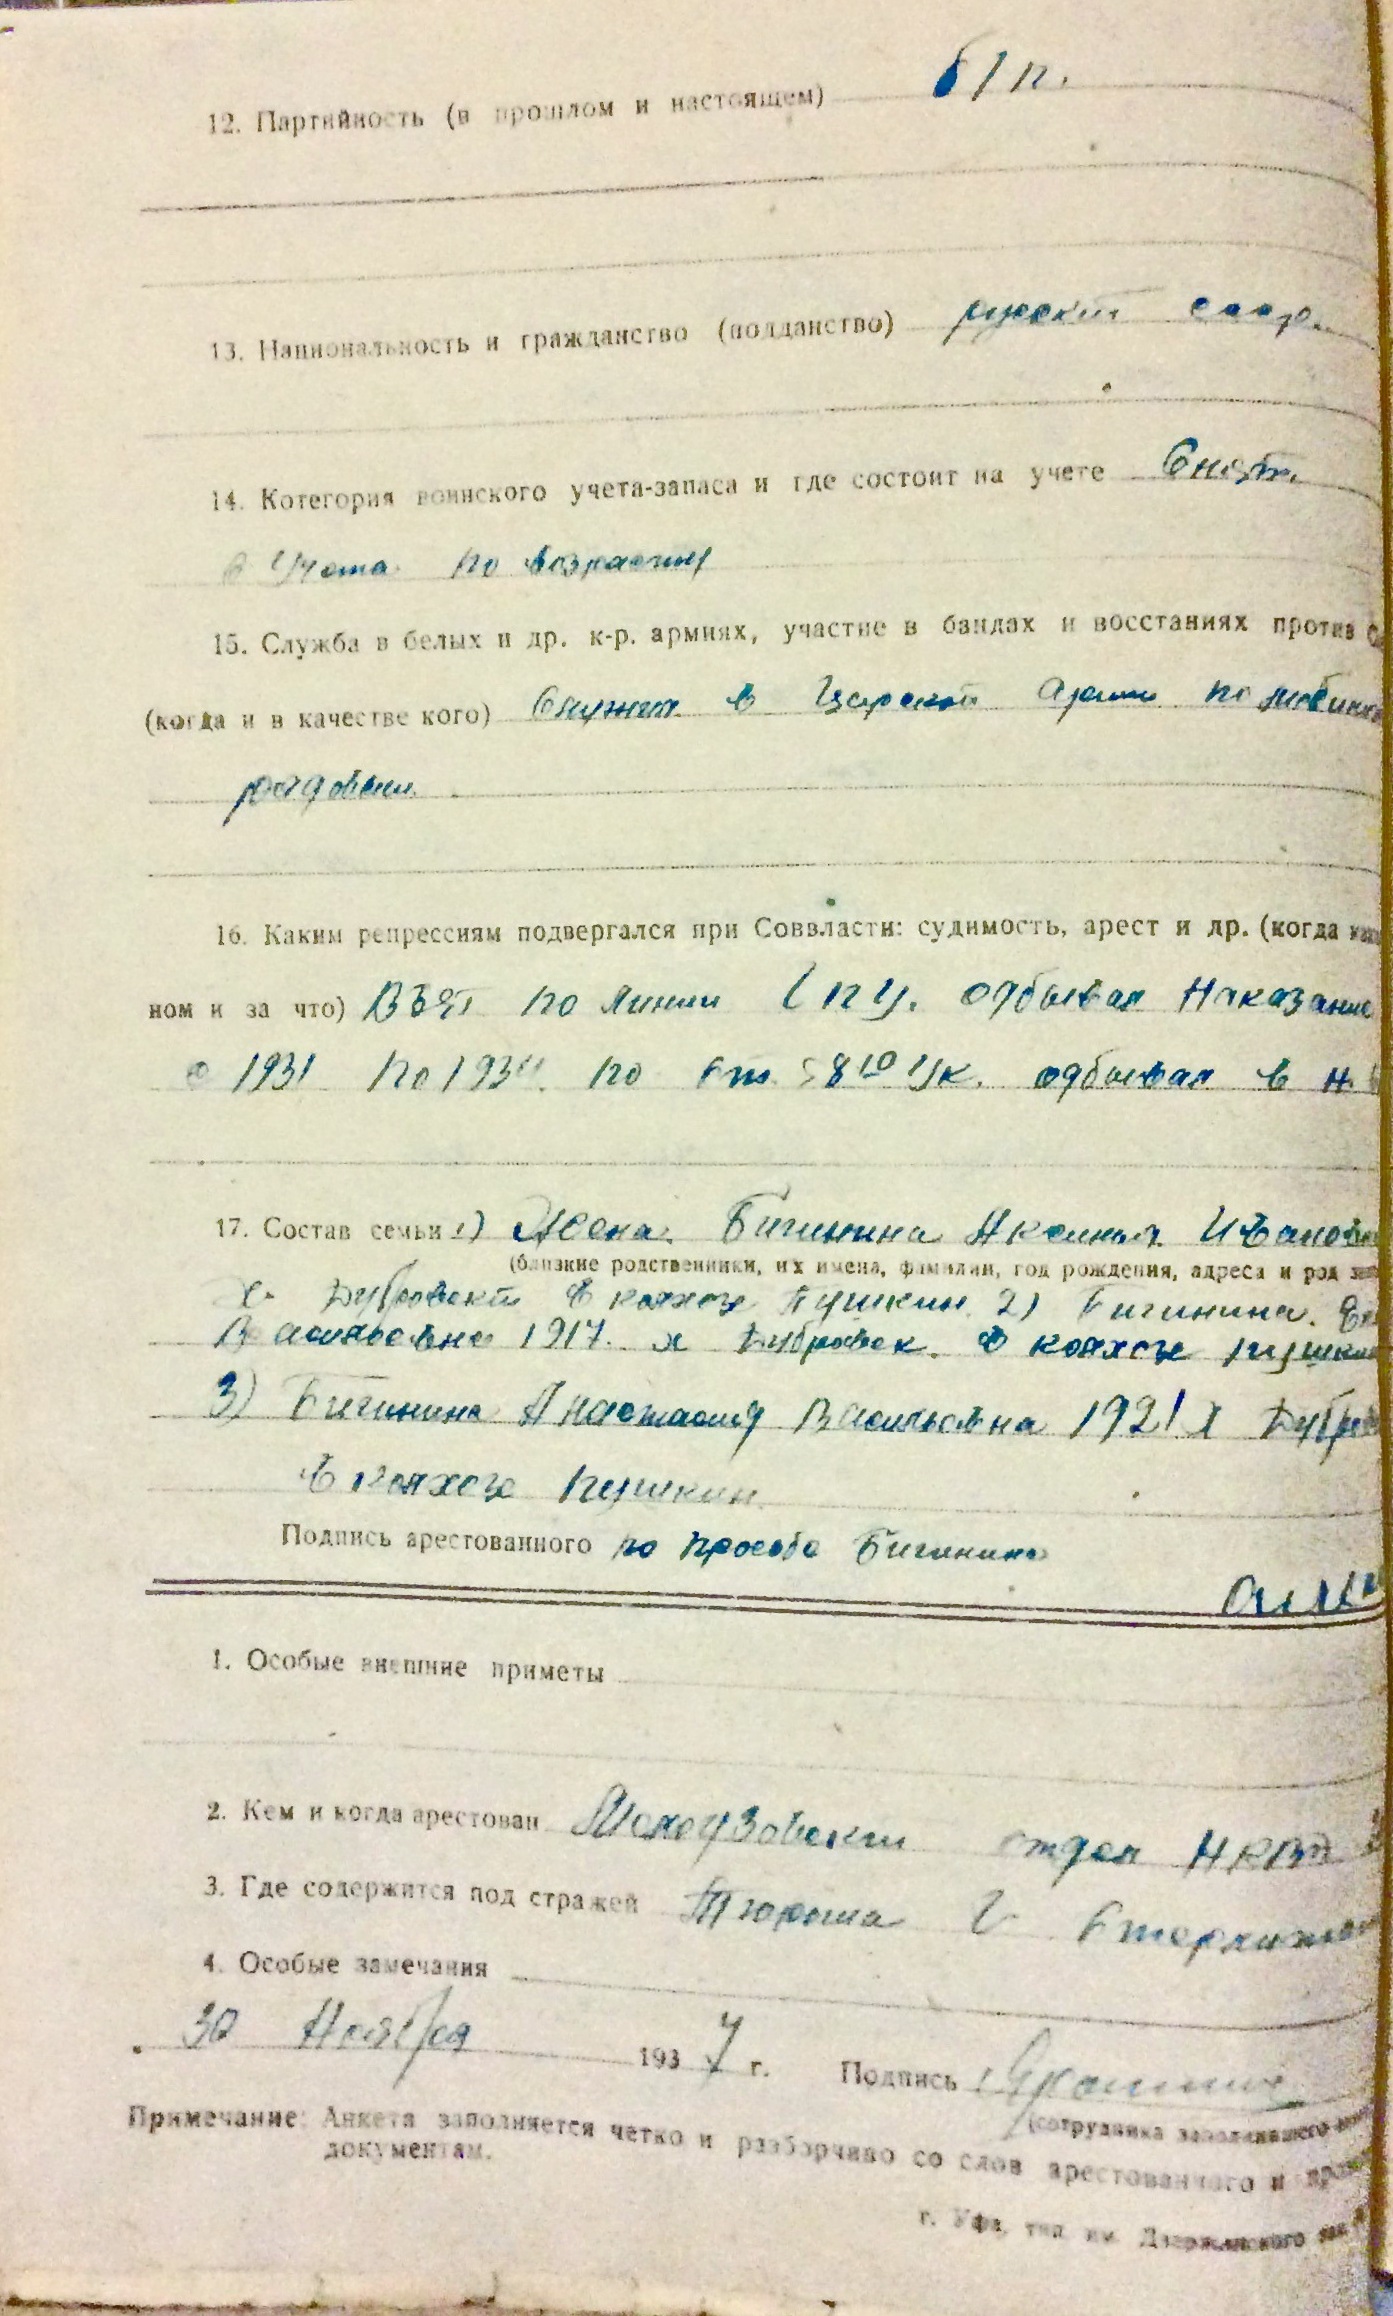 12. Партийность (в прошлом и настоящем) б/п.
13. Национальность и гражданство (подданство) русский ссср.
14. Котегория воинского учета-запаса и где состоит на учете Снят.
с Учета по возрасту
15. Служба в белых и др. к-р. армиях, участие в бандах и восстаниях против
(когда и в качестве кого) Служил в Царской Армии по
рядовым
16. Каким репрессиям подвергался при Соввласти: судимость, арест и др. (когда
ном и за что) Взят по линии ГПУ. одбывал Наказание
с 1931 по 1934 по ст. 58 10 УК. одбывал в
17. Состав семьи 1) Жена. Бигинина Аксинья
(близкие родственники, их имена, фамилии, год рождения, адреса и род
х. Дубровский в колхозе Пушкин 2) Бигинина.
Васильевна 1917. х Дубровск. в колхозе
3) Бигинина Анастасия Васильевна 1921 х
в колхозе Пушкин
Подпись арестованного по просьбе Бигинина
1. Особые внешние приметы
2. Кем и когда арестован Мелеузовский отдел НКВД
3. Где содержится под стражей Тюрьма г.
4. Особые замечания
30 Ноября 1937 г. Подпись
(сотрудника заполнившего
Примечание: Анкета заполняется четко и разборчиво со слов арестованного и
документам.
г. Уфа, тип. им. Дзержинского